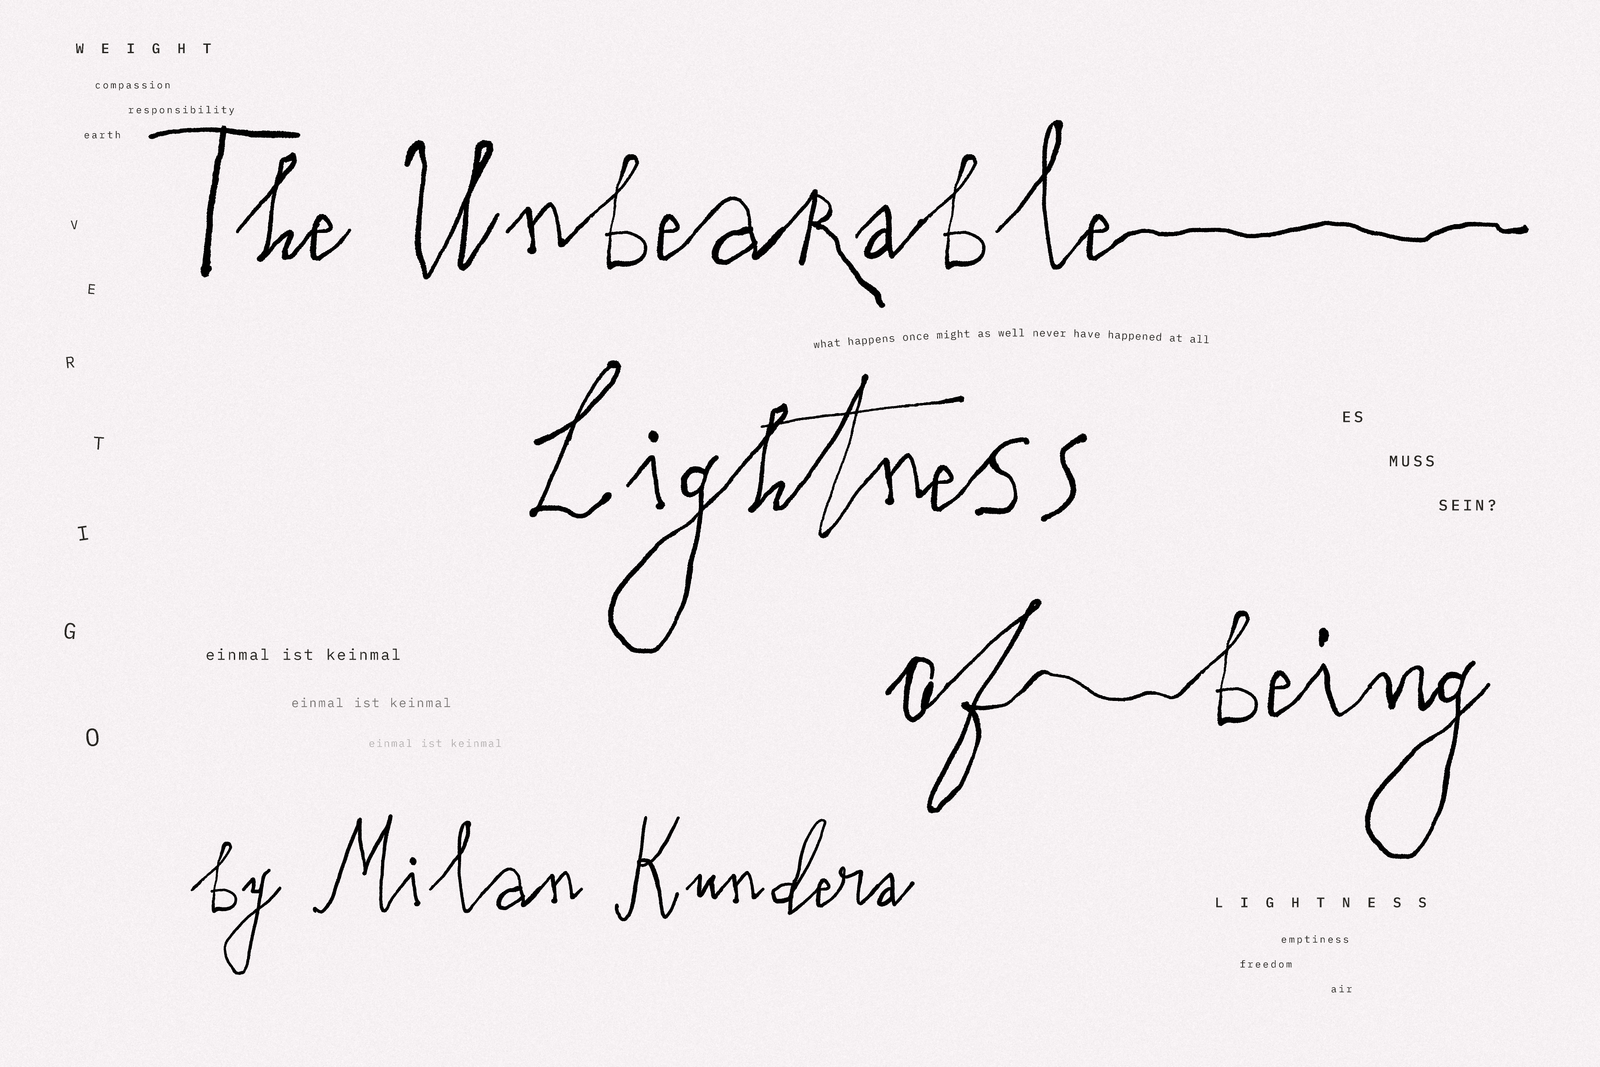 WEIGHT
compassion
responsibility
earth
The UnbeaRable
VERTIGO
what happens once might as well never have happened at all
Lightness
ES
MUSS
SEIN?
of being
einmal ist keinmal
einmal ist keinmal
einmal ist keinmal
by Milan Kundera
LIGHTNESS
emptiness
freedom
air